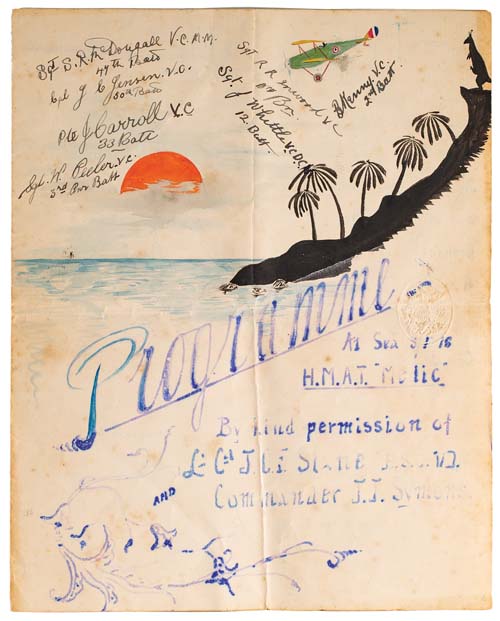 Sgt S. R. McDougall V.C. M.M.
47th Batt
Cpl J C Jensen. V.C.
50th Batt
Pte J Carroll V.C
33 Batt
Sgt. W. Peeler V.C.
3rd Pnr Batt
Sgt R R Inwood V C
10 Bn
Sgt. J Whittle V.C. D.C.M
12. Batt.
B Kenny V.C.
2nd Batt.
Programme
At Sea
H.M.A.T.
By kind permission of
Lt Col J. C. F.
AND
Commander J. J. Symons